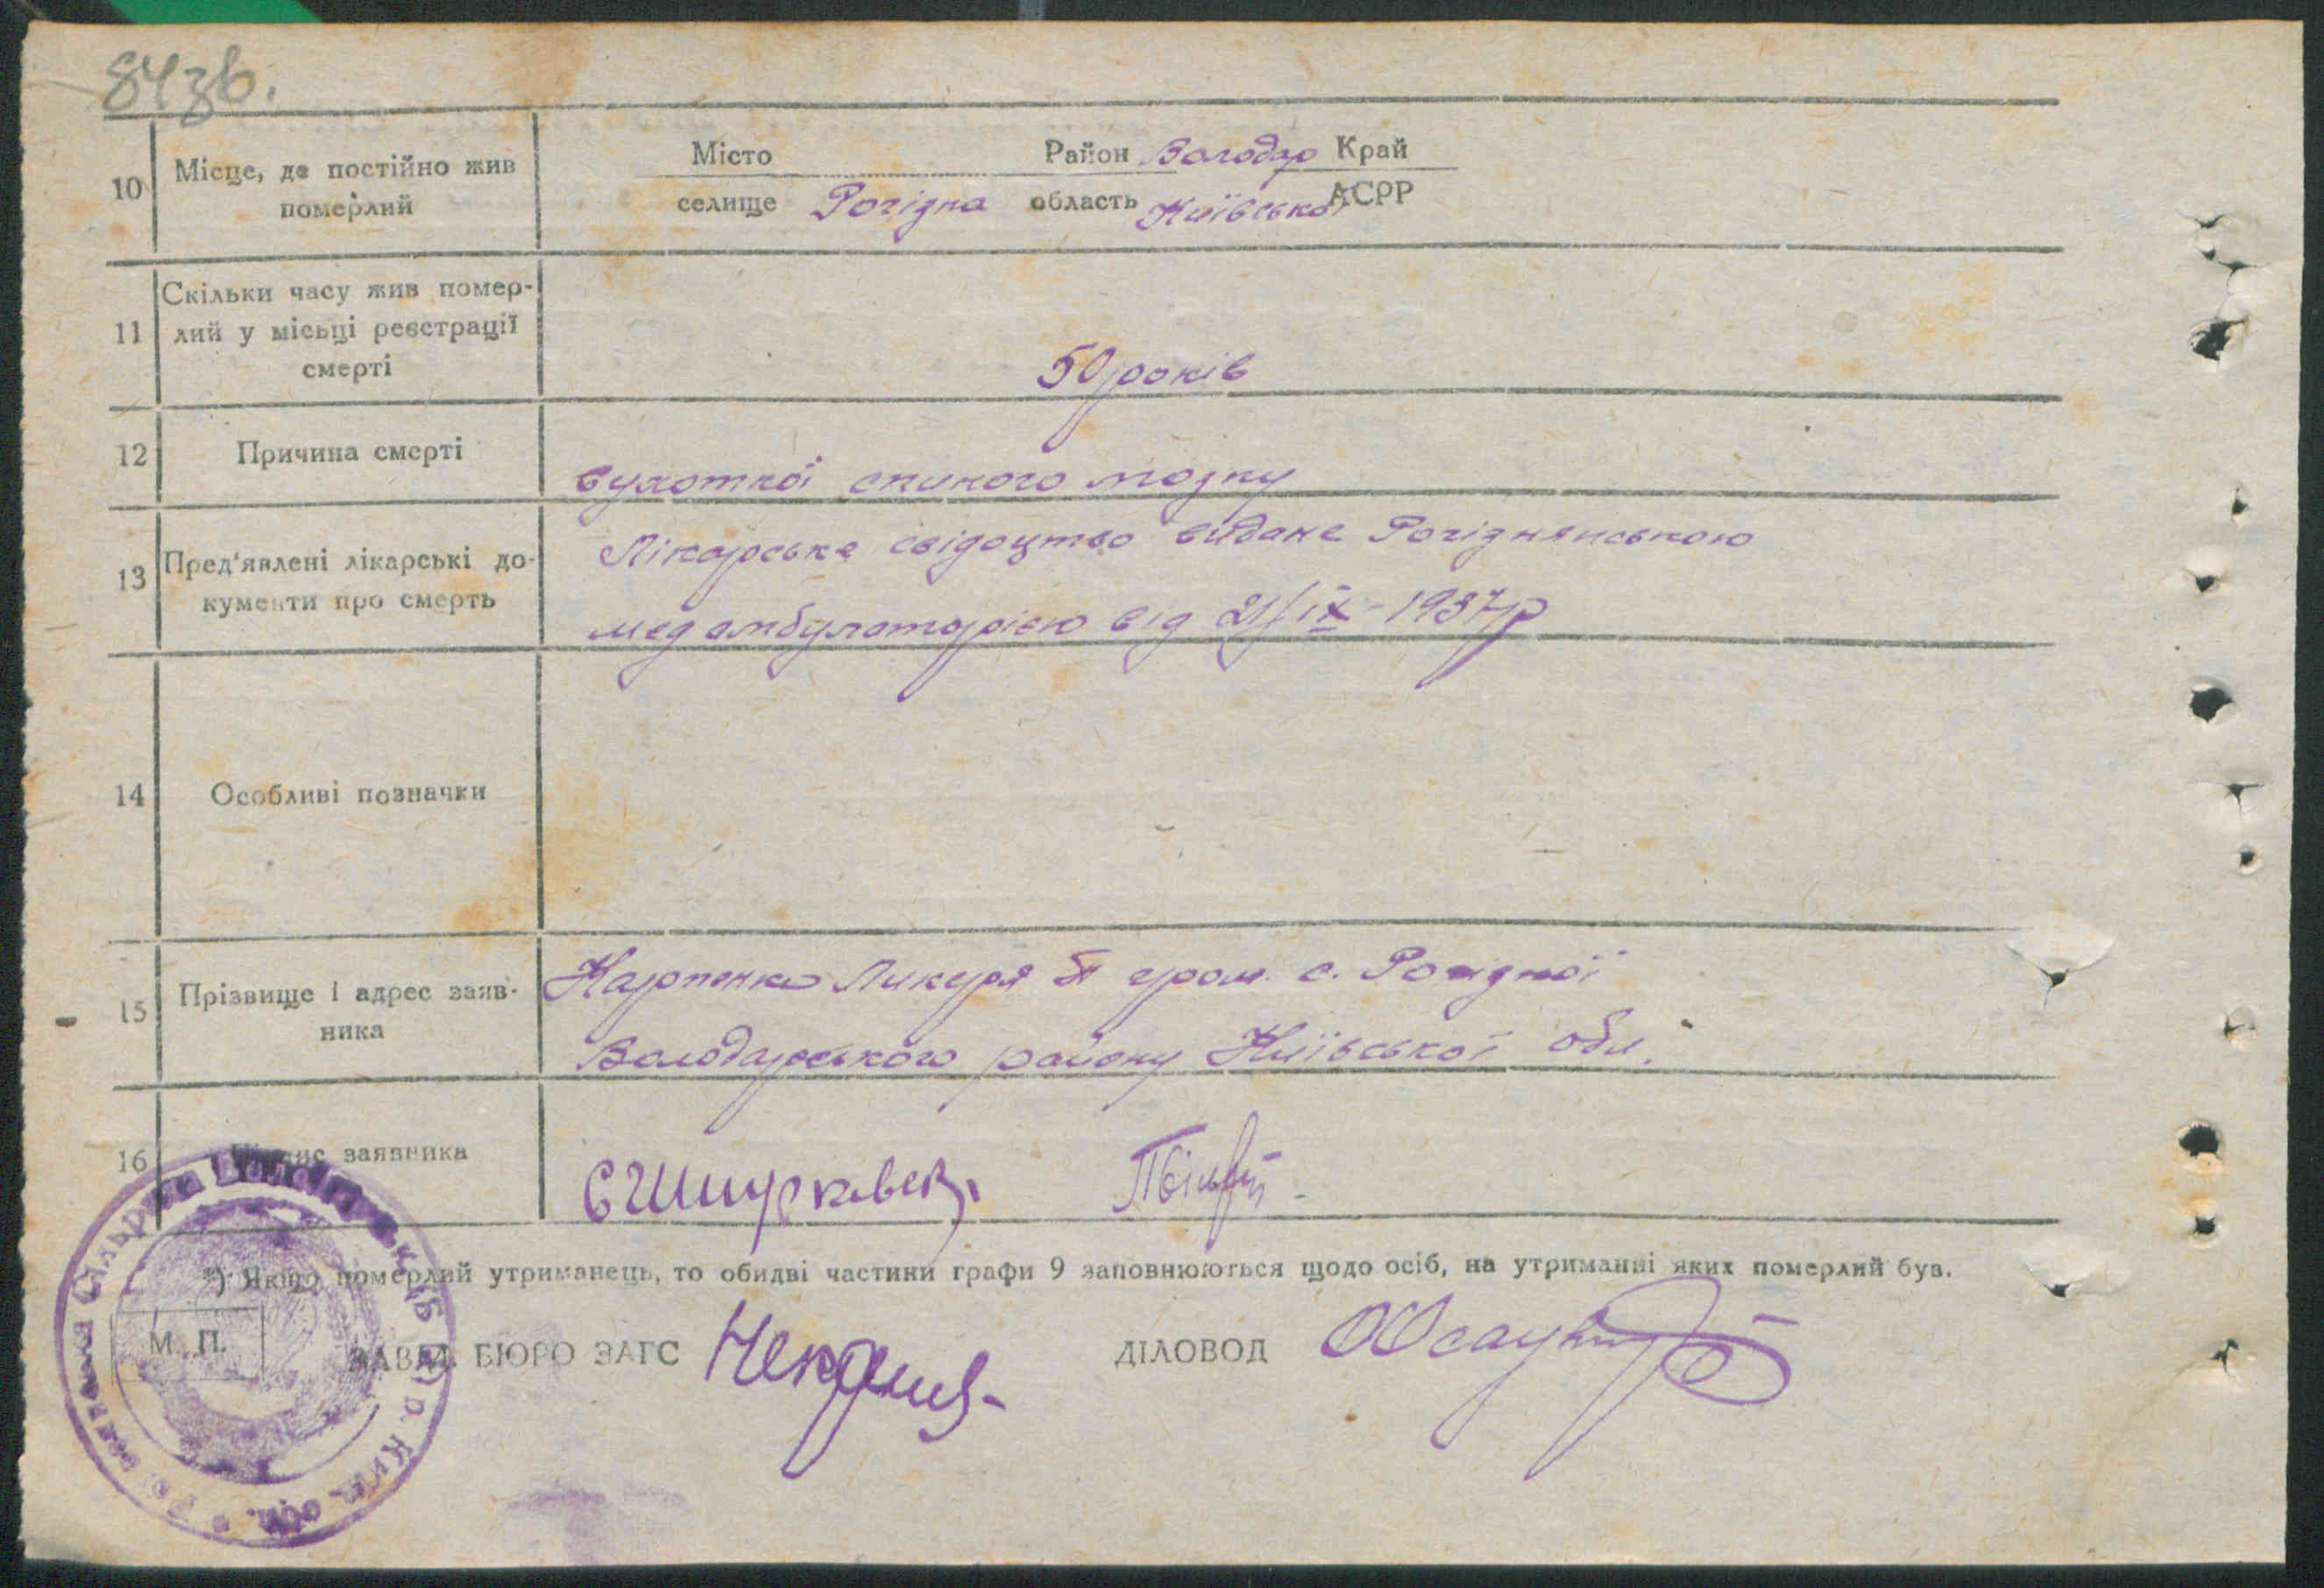 84зв.
10 Місце, де постійно жив померлий
Місто Район Володар Край
селище Рогізна область Київської АСРР
11 Скільки часу жив помер-
лий у місьці реєстрації
смерті
50 років
12 Причина смерті
сухоткої спиного мозку
13 Пред'явлені лікарські до-
кументи про смерть
Лікарське свідоцтво видане Рогізнянською
мед амбулаторією від 21/IX-1937р
14 Особливі позначки
15 Прізвище і адрес заяв-
ника
Карпенко Ликеря гром. с. Рогізної
Володарського району Київської обл.
16 Підпис заявника
*) Якщо померлий утриманець, то обидві частини графи 9 заповнюються щодо осіб, на утриманні яких померлий був.
М. П.
ЗАВІД. БЮРО ЗАГС
ДІЛОВОД